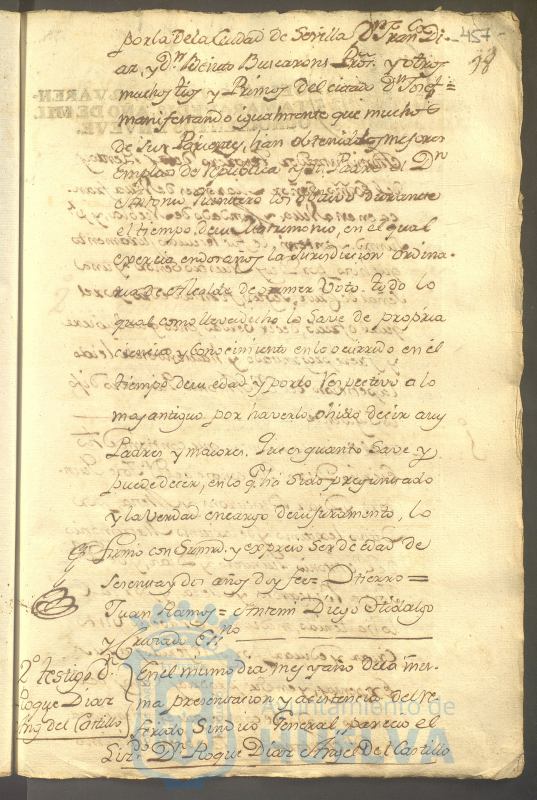 457
98
por la de la Ciudad de Sevilla Dn. Franco. Di-
az, y Dn. Buscarons Pror. y otros
muchos tios y Primos del citado Dn. Josef =
manifestando igualmente que muchos
de sus Parientes, han obtenido los mejores
empleos de Republica y su Padre el Dn.
Antonio los obtuvo durante
el tiempo de su Matrimonio, en el qual
exercia endos años la Jurisdiccion Ordina-
ria de Alcalde de primer Voto. todo lo
qual como lleva dicho lo save de propria
ciencia y conocimiento en lo ocurrido en el
tiempo de su edad y por lo respectivo a lo
mas antiguo por haverlo ohido decir a sus
Padres y maiores. Que es quanto save y
puede decir, en lo q. ha sido preguntado
y la verdad en cargo de su juramento, lo
firmó con Sumrd. y expreso ser de edad de
sesenta y dos años doy fee = Dtierro =
Juan Ramos = Antemi Diego Hidalgo
y Cruzado Esno.
2º testigo Dn.
Roque Diaz
Ang. del Castillo
En el mismo dia mes y año de la mis-
ma presentacion y asistencia del re-
ferido Sindico General, parecio el
Dn. Roque Diaz Angel del Castillo
Ayuntamiento de
HUELVA